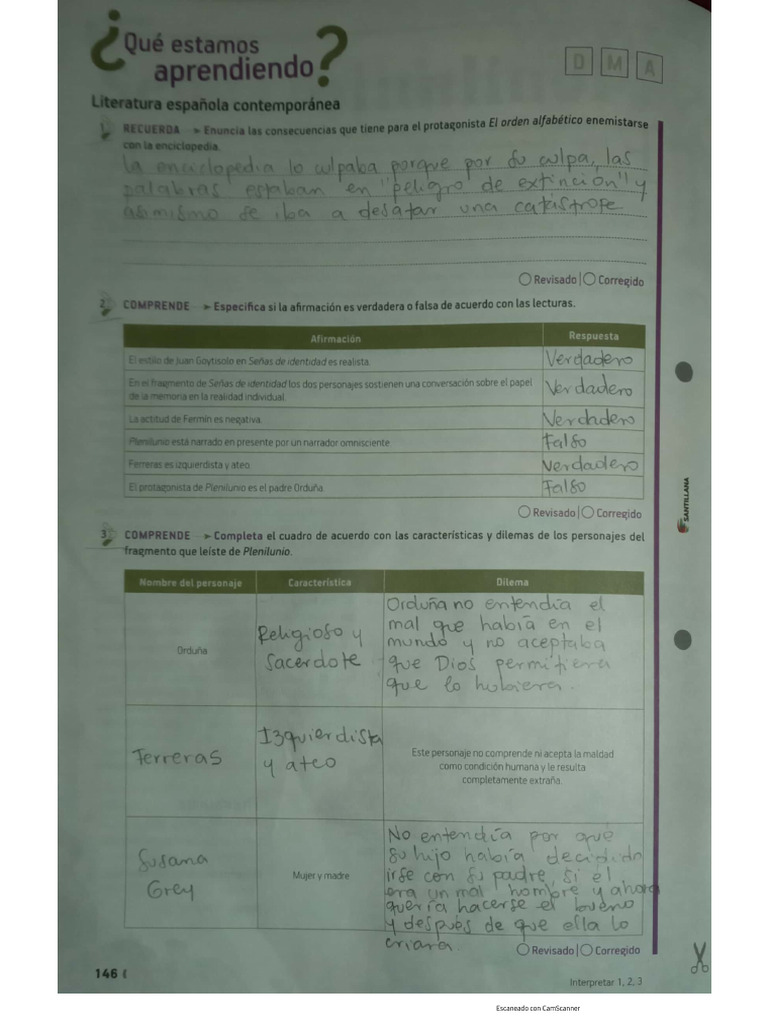 ¿Qué estamos
aprendiendo?
D M A
Literatura española contemporánea
1. RECUERDA ➤ Enuncia las consecuencias que tiene para el protagonista El orden alfabético enemistarse
con la enciclopedia.
La enciclopedia lo culpaba porque por su culpa, las
palabras estaban en "peligro de extinción" y
asimismo se iba a desatar una catástrofe
Revisado | Corregido
2. COMPRENDE ➤ Especifica si la afirmación es verdadera o falsa de acuerdo con las lecturas.
Afirmación Respuesta
El estilo de Juan Goytisolo en Señas de identidad es realista. Verdadero
En es fragmento de Señas de identidad los dos personajes sostienen una conversación sobre el papel
de la memoria en la realidad individual. Verdadero
La actitud de Fermín es negativa. Verdadero
Plenilunio está narrado en presente por un narrador omnisciente. Falso
Ferreras es izquierdista y ateo. Verdadero
El protagonista de Plenilunio es el padre Orduña. Falso
Revisado | Corregido
SANTILLANA
3. COMPRENDE ➤ Completa el cuadro de acuerdo con las características y dilemas de los personajes del
fragmento que leíste de Plenilunio.
Nombre del personaje Característica Dilema
Orduña
Religioso y
sacerdote
Orduña no entendía el
mal que había en el
mundo y no aceptaba
que Dios permitiera
que lo hubiera.
Ferreras
Izquierdista
y ateo
Este personaje no comprende ni acepta la maldad
como condición humana y le resulta
completamente extraña.
Susana
Grey
Mujer y madre
No entendía por qué
su hijo había decidido
irse con su padre, si él
era un mal hombre y ahora
quería hacerse el bueno
y después de que ella lo
criara.
Revisado | Corregido
146
Interpretar 1, 2, 3
Escaneado con CamScanner